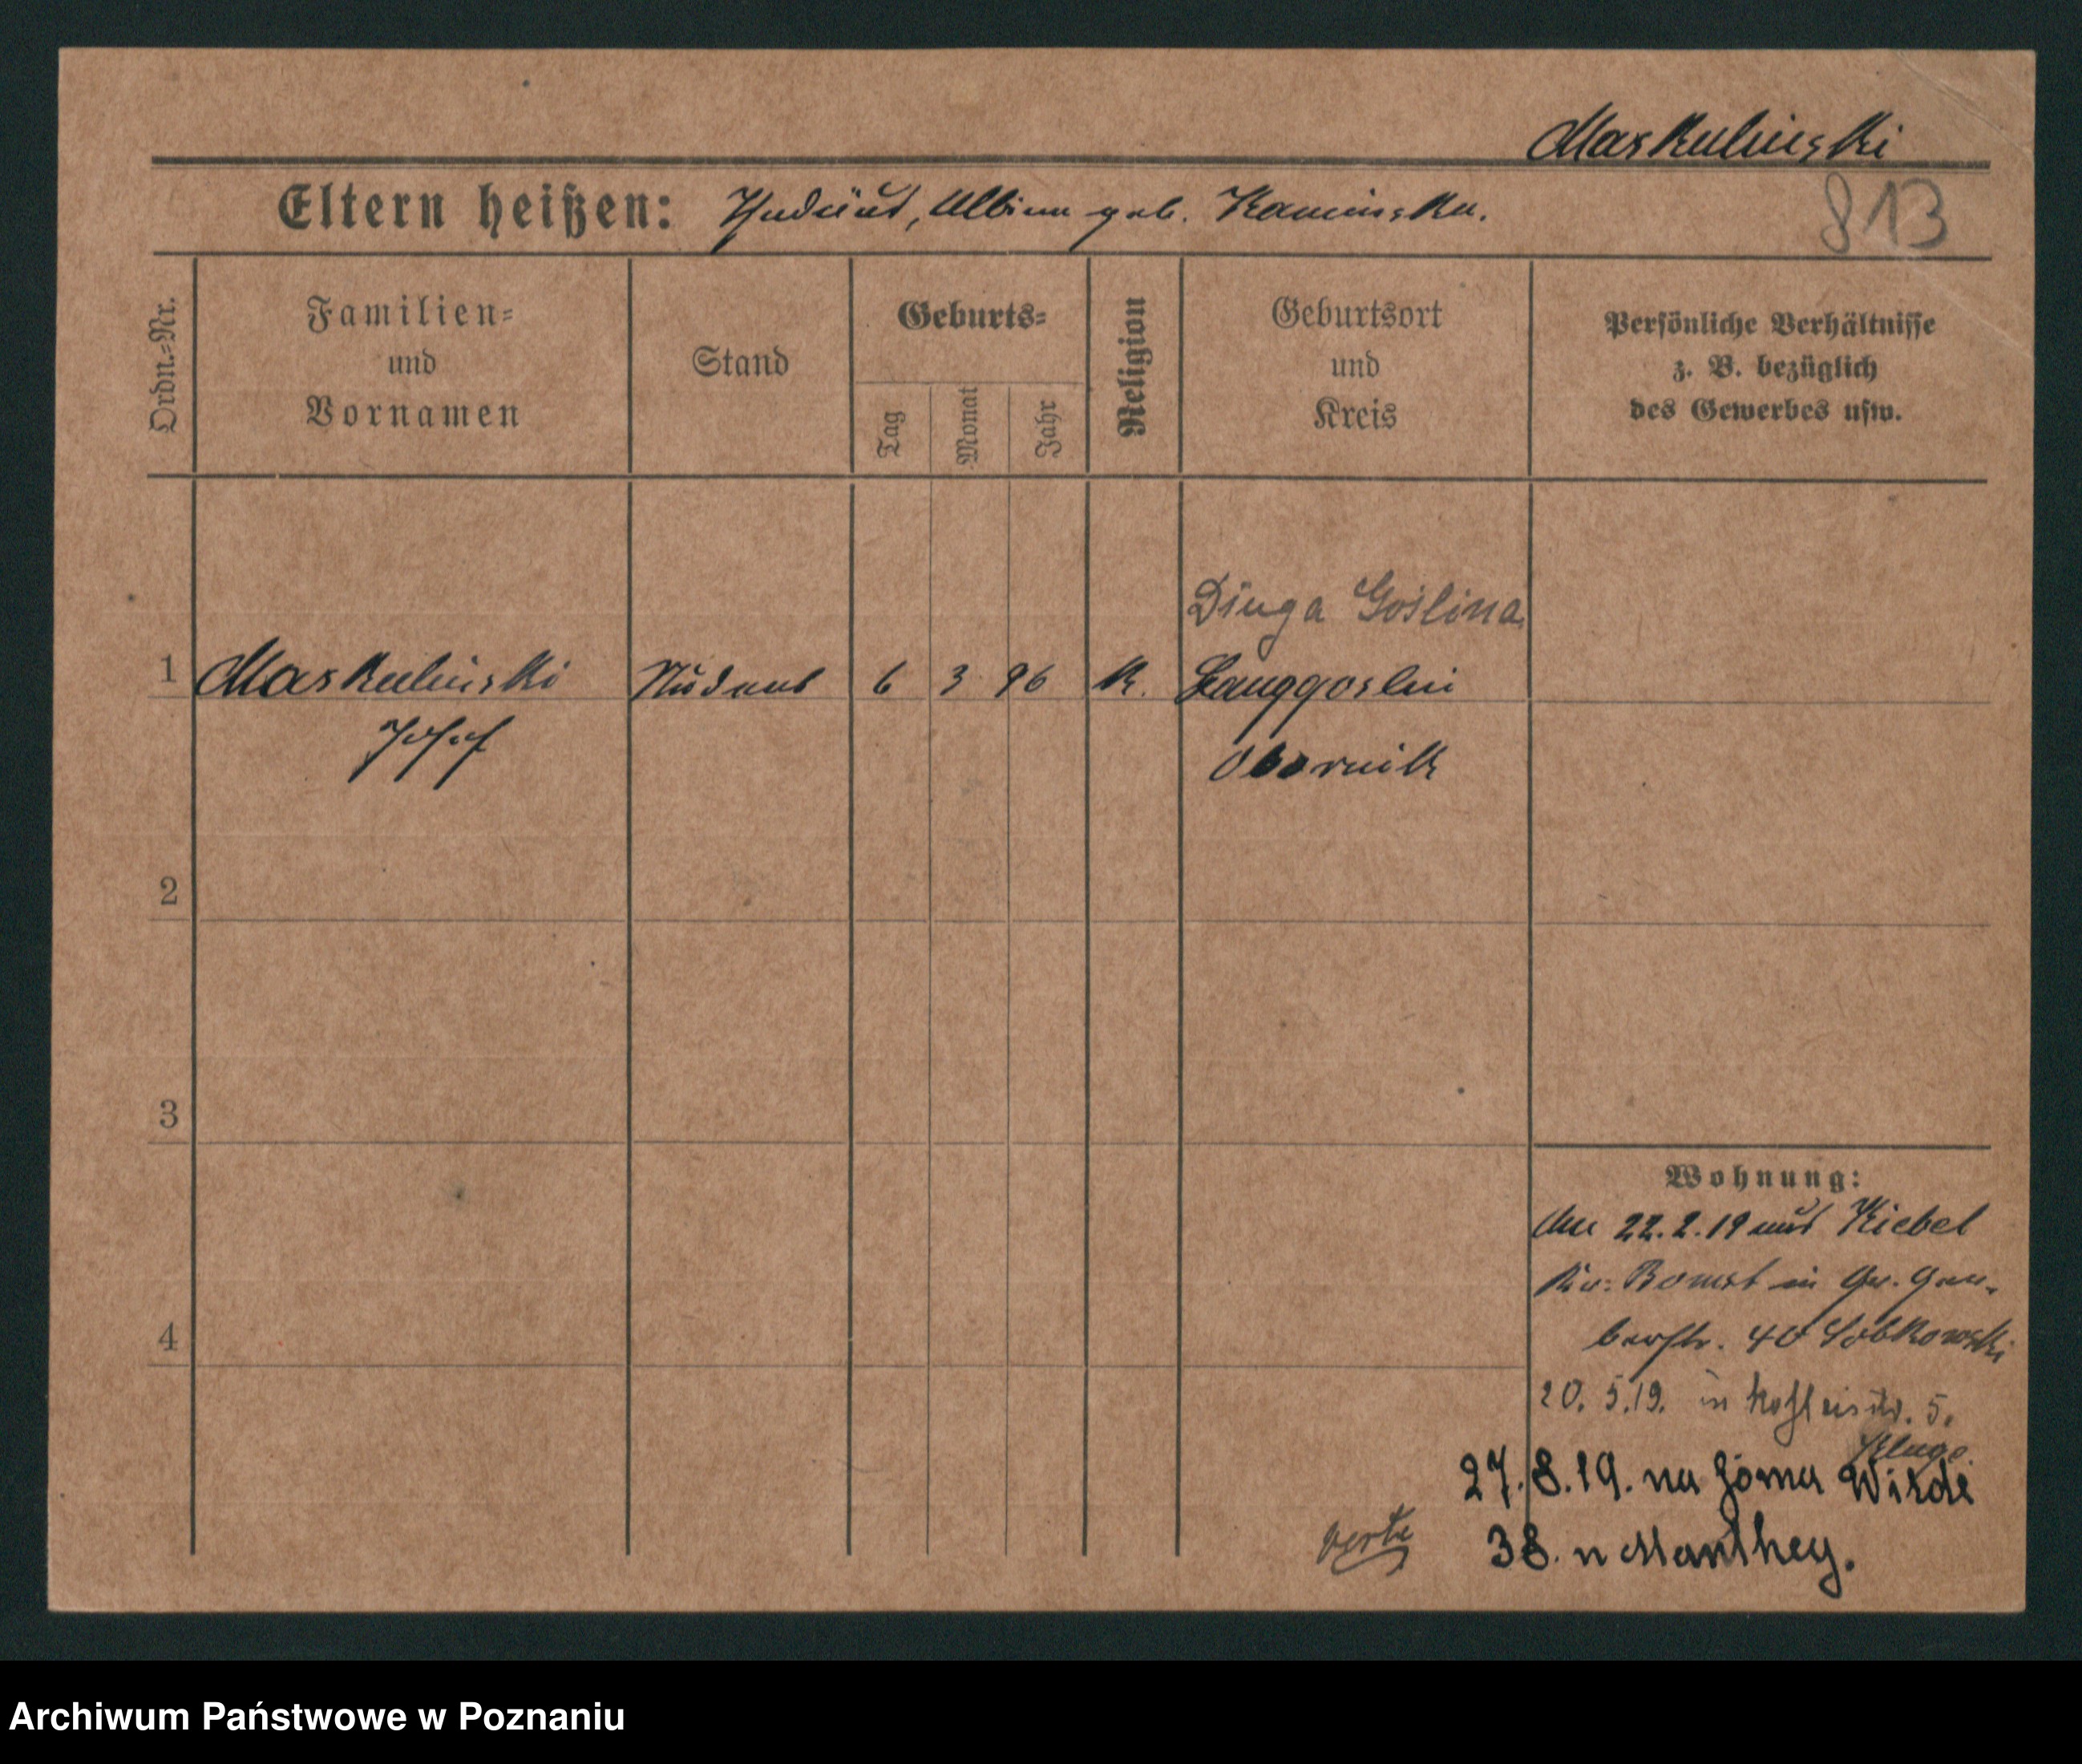 Maskulinski
Eltern heißen: Thadäus, Albina geb. Kaminska.
813
Ordn.-Nr.
Familien-
und
Vornamen
Stand
Geburts-
Tag
Monat
Jahr
Religion
Geburtsort
und
Kreis
Persönliche Verhältnisse
z. B. bezüglich
des Gewerbes usw.
Długa Goślina
1 Maskulinski Student 6 3 96 K. Langgoslin
Josef Obornik
2
3
Wohnung:
Am 22.2.19 aus Kiebel
Kr. Bomst in
4
40 Sobkowski
20. 5. 19. in 5.
Kluge
27. 8. 19. na Górna Wilde
38. u Manthey.
verte
Archiwum Państwowe w Poznaniu